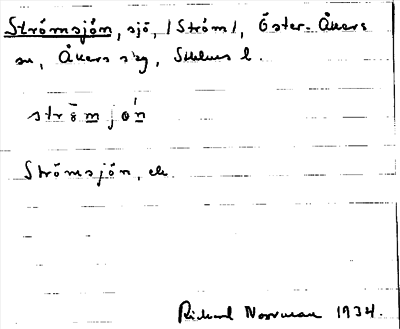 Strömsjön, sjö, /Ström/, Öster-Åkers
sn, Åkers skg, Sthlms l.
strömjön
Strömsjön, ek.
Rickard Norrman 1934.